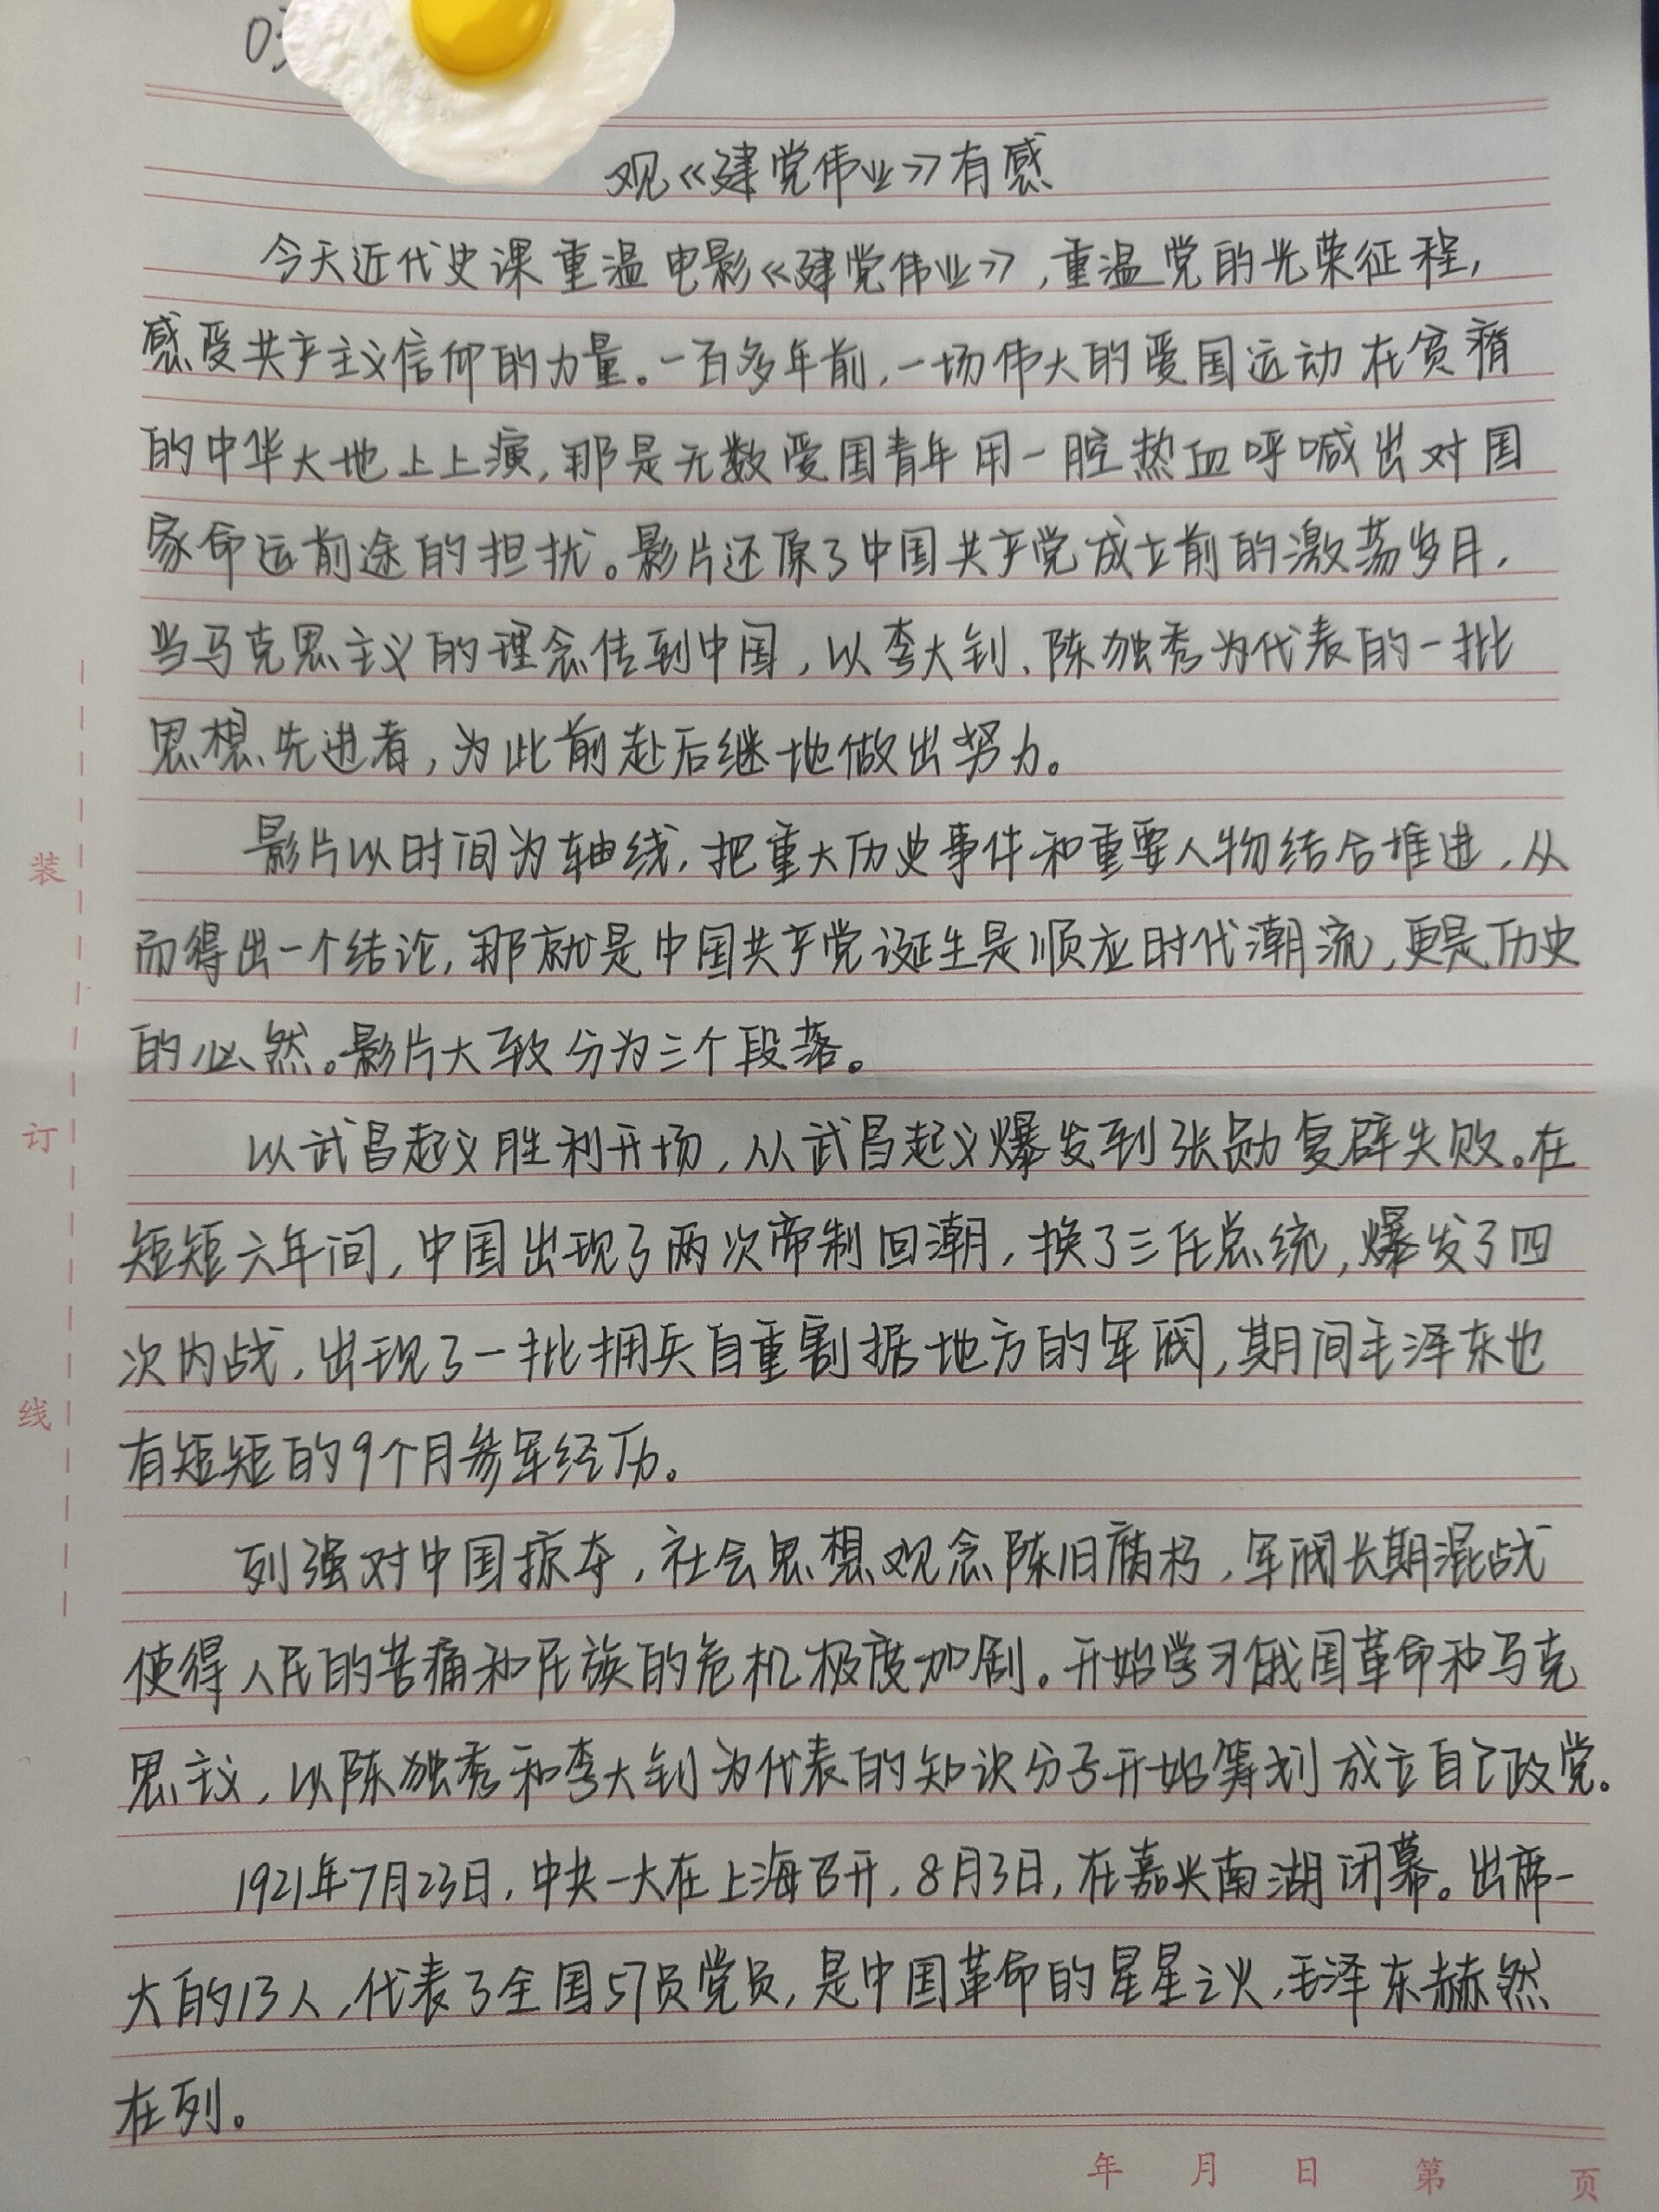 观《建党伟业》有感
今天近代史课重温电影《建党伟业》，重温党的光荣征程，
感受共产主义信仰的力量。一百多年前，一场伟大的爱国运动在贫瘠
的中华大地上上演，那是无数爱国青年用一腔热血呼喊出对国
家命运前途的担扰。影片还原了中国共产党成立前的激荡岁月，
当马克思主义的理念传到中国，以李大钊、陈独秀为代表的一批
思想先进者，为此前赴后继地做出努力。
影片以时间为轴线，把重大历史事件和重要人物结合推进，从
而得出一个结论，那就是中国共产党诞生是顺应时代潮流，更是历史
的必然。影片大致分为三个段落。
以武昌起义胜利开场，从武昌起义爆发到张勋复辟失败。在
短短六年间，中国出现了两次帝制回潮，换了三任总统，爆发了四
次内战，出现了一批拥兵自重割据地方的军阀，期间毛泽东也
有短短的9个月参军经历。
列强对中国掠夺，社会思想观念陈旧腐朽，军阀长期混战
使得人民的苦痛和民族的危机极度加剧。开始学习俄国革命和马克
思主义，以陈独秀和李大钊为代表的知识分子开始筹划成立自己政党。
1921年7月23日，中共一大在上海召开，8月3日，在嘉兴南湖闭幕。出席一
大的13人，代表了全国57员党员，是中国革命的星星之火，毛泽东赫然
在列。
装
订
线
年 月 日 第 页